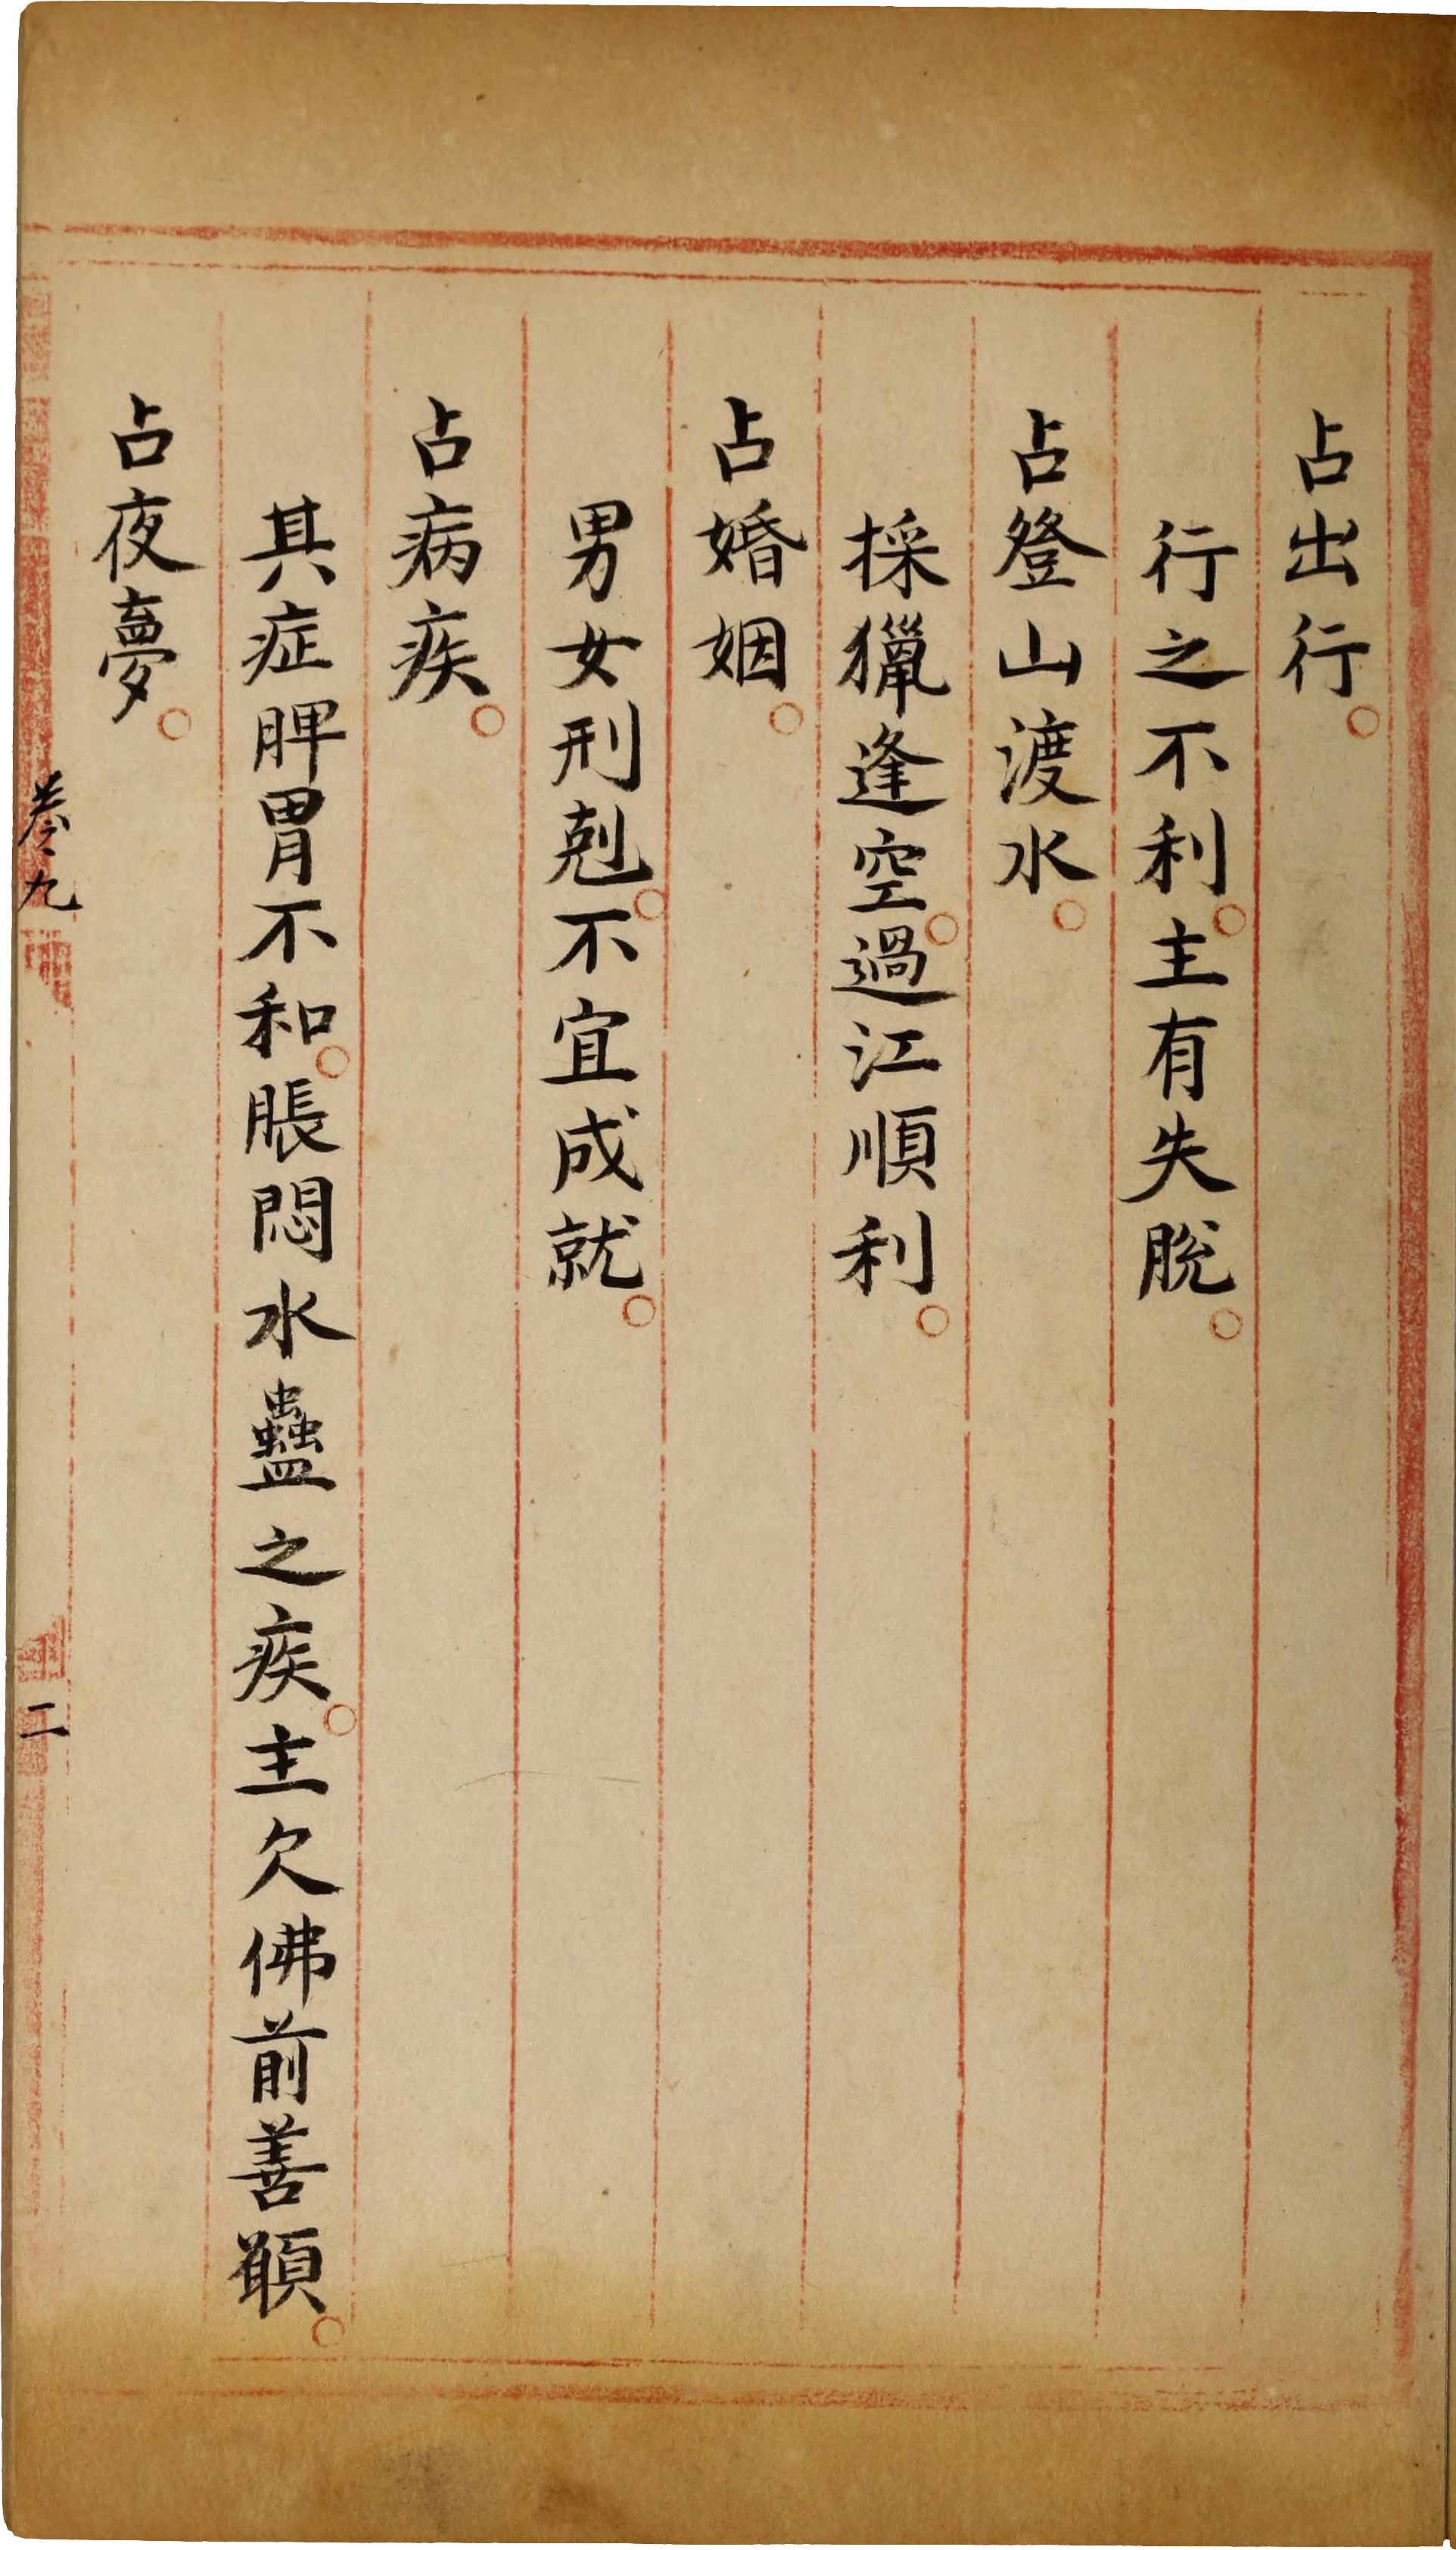 占出行。
行之不利。主有失脫。
占登山渡水。
採獵逢空。過江順利。
占婚姻。
男女刑剋。不宜成就。
占病疾。
其症脾胃不和。脹悶水蠱之疾。主欠佛前善願。
占夜夢。
卷九
二